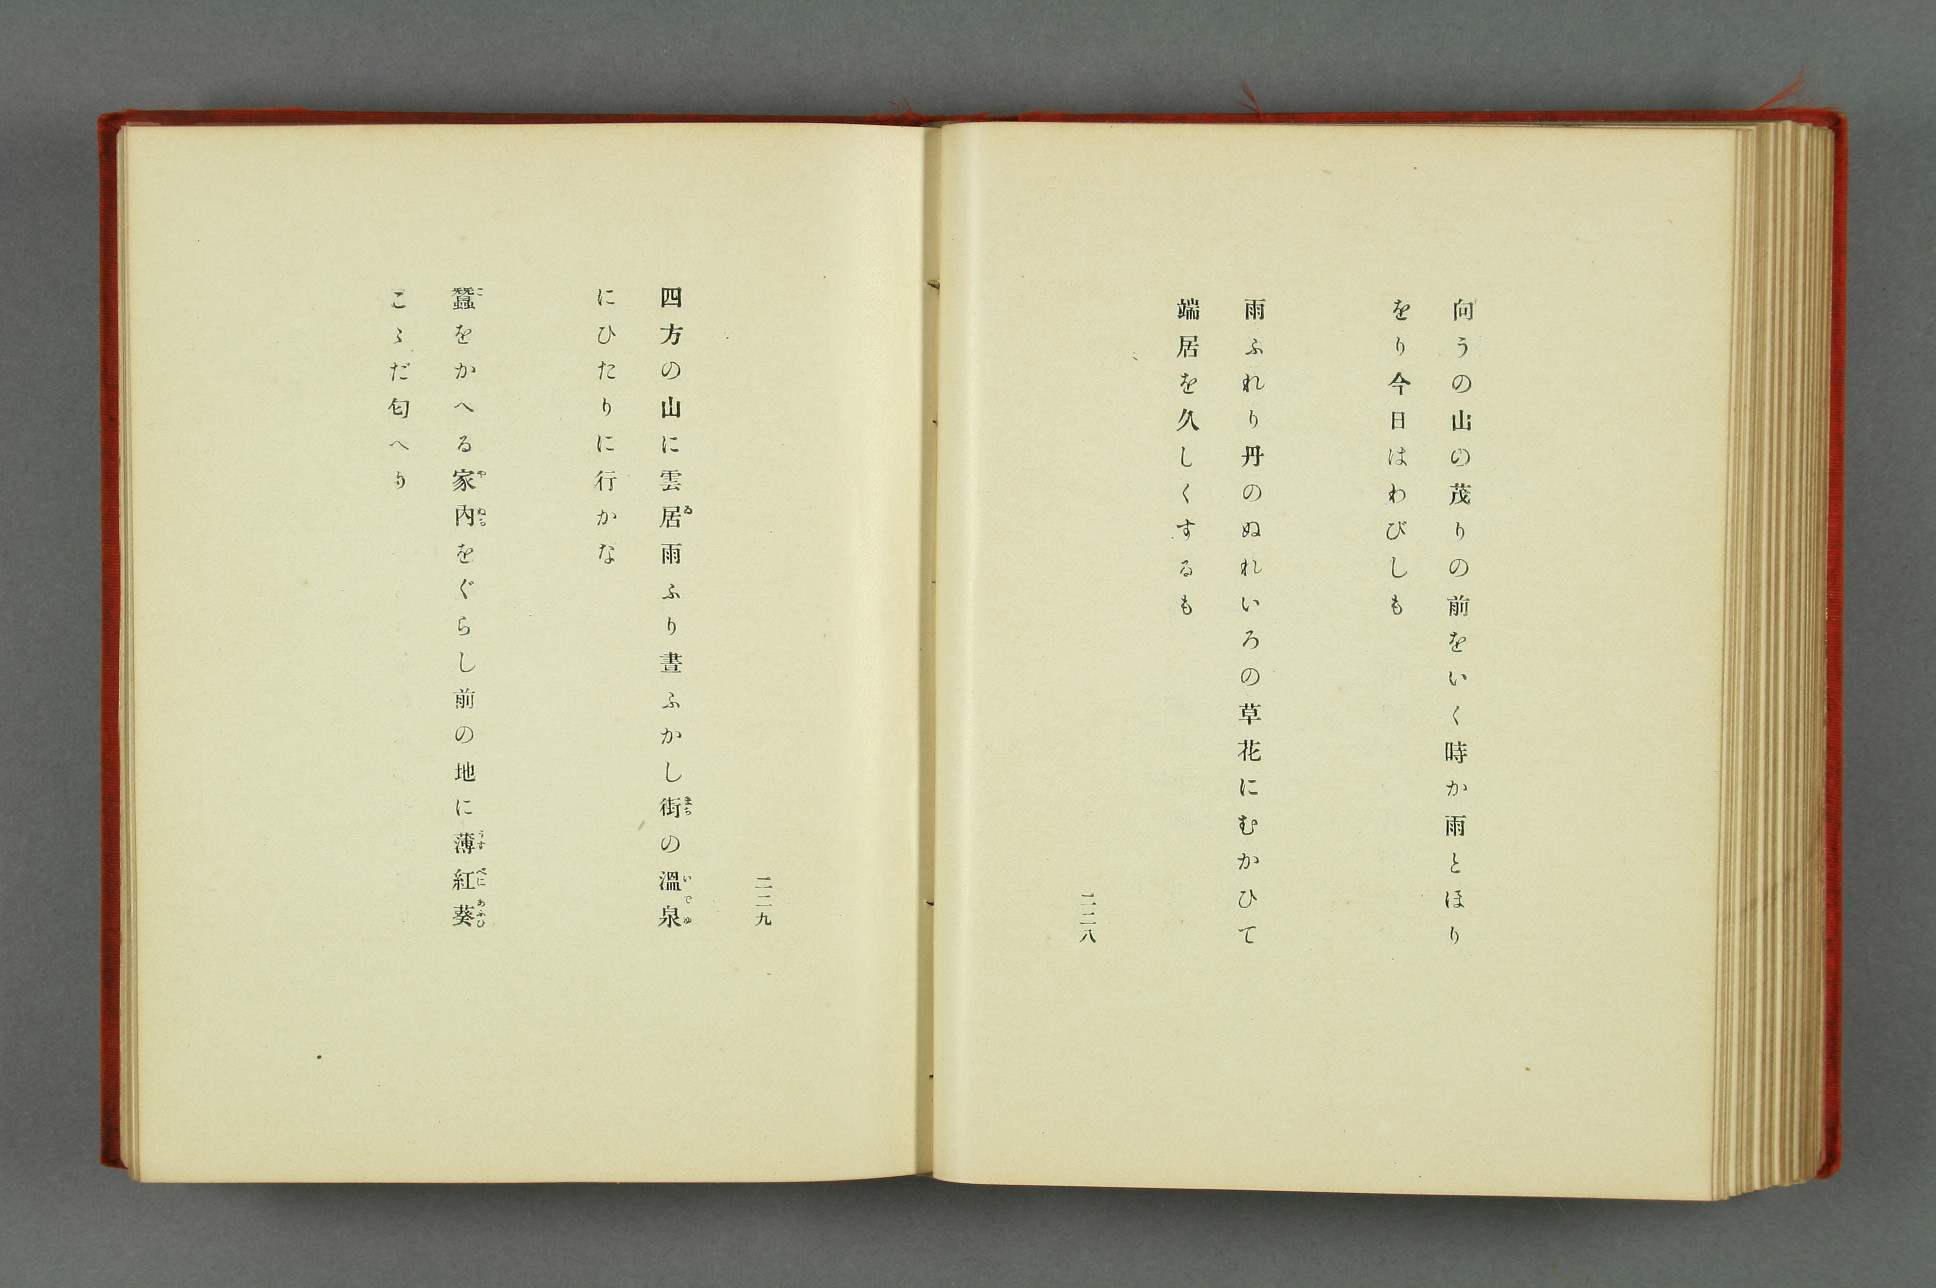 向うの山の茂りの前をいく時か雨とほり
をり今日はわびしも
雨ふれり丹のぬれいろの草花にむかひて
端居を久しくするも
二二八
二二九
四方の山に雲居雨ふり晝ふかし街の溫泉
にひたりに行かな
蠶をかへる家內をぐらし前の地に薄紅葵
こゝだ匂へり